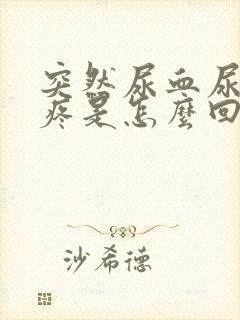 突然尿血尿
疼是怎麼回
沙希德